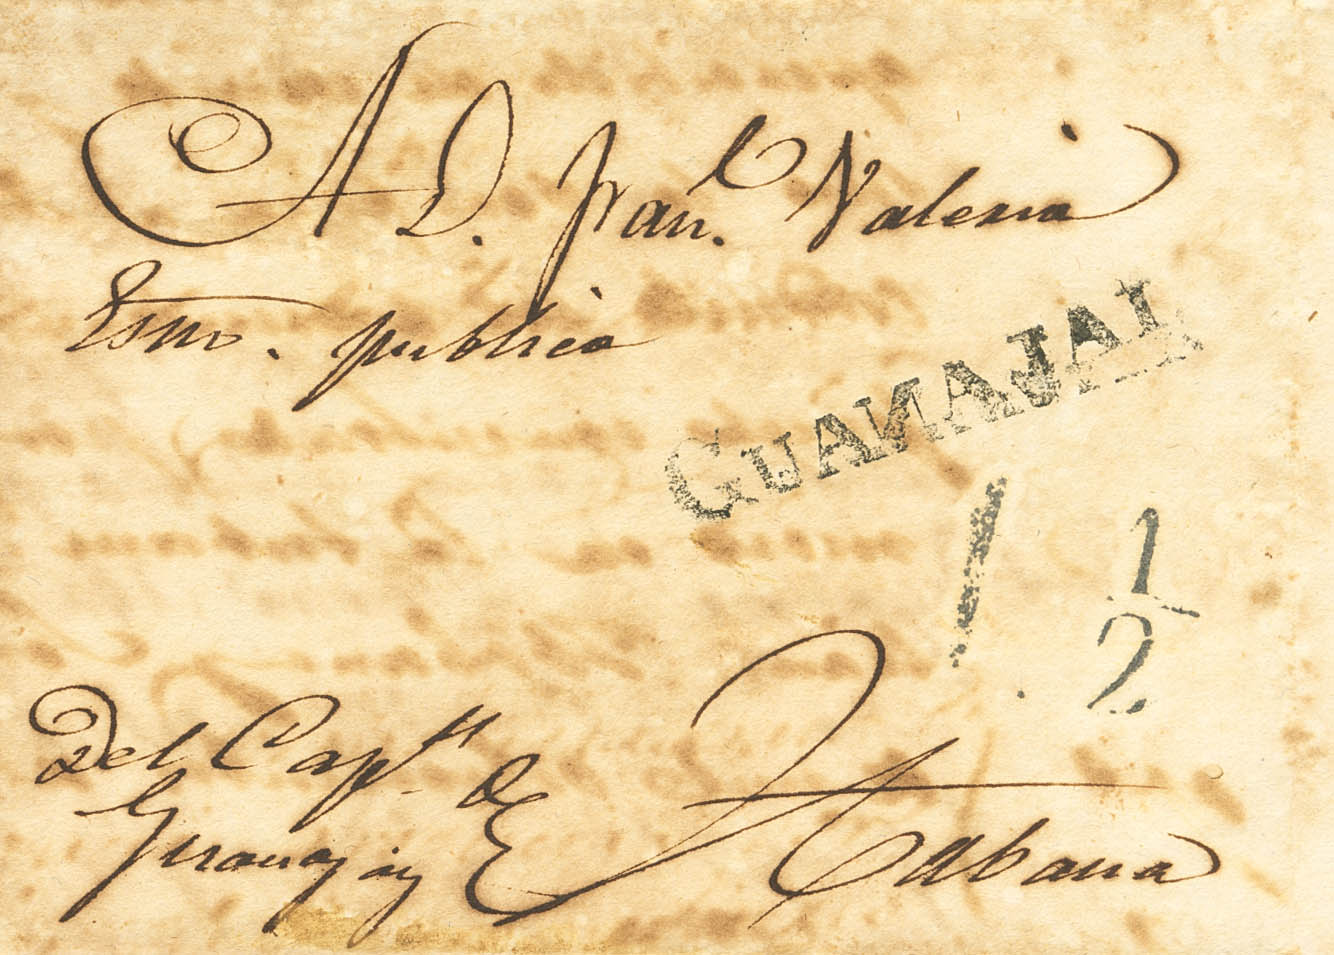 A D. Fran.co Valerio
Esno. publico
GUANAJAI
1 1/2
Del Cap.n de
Guanajay
Habana